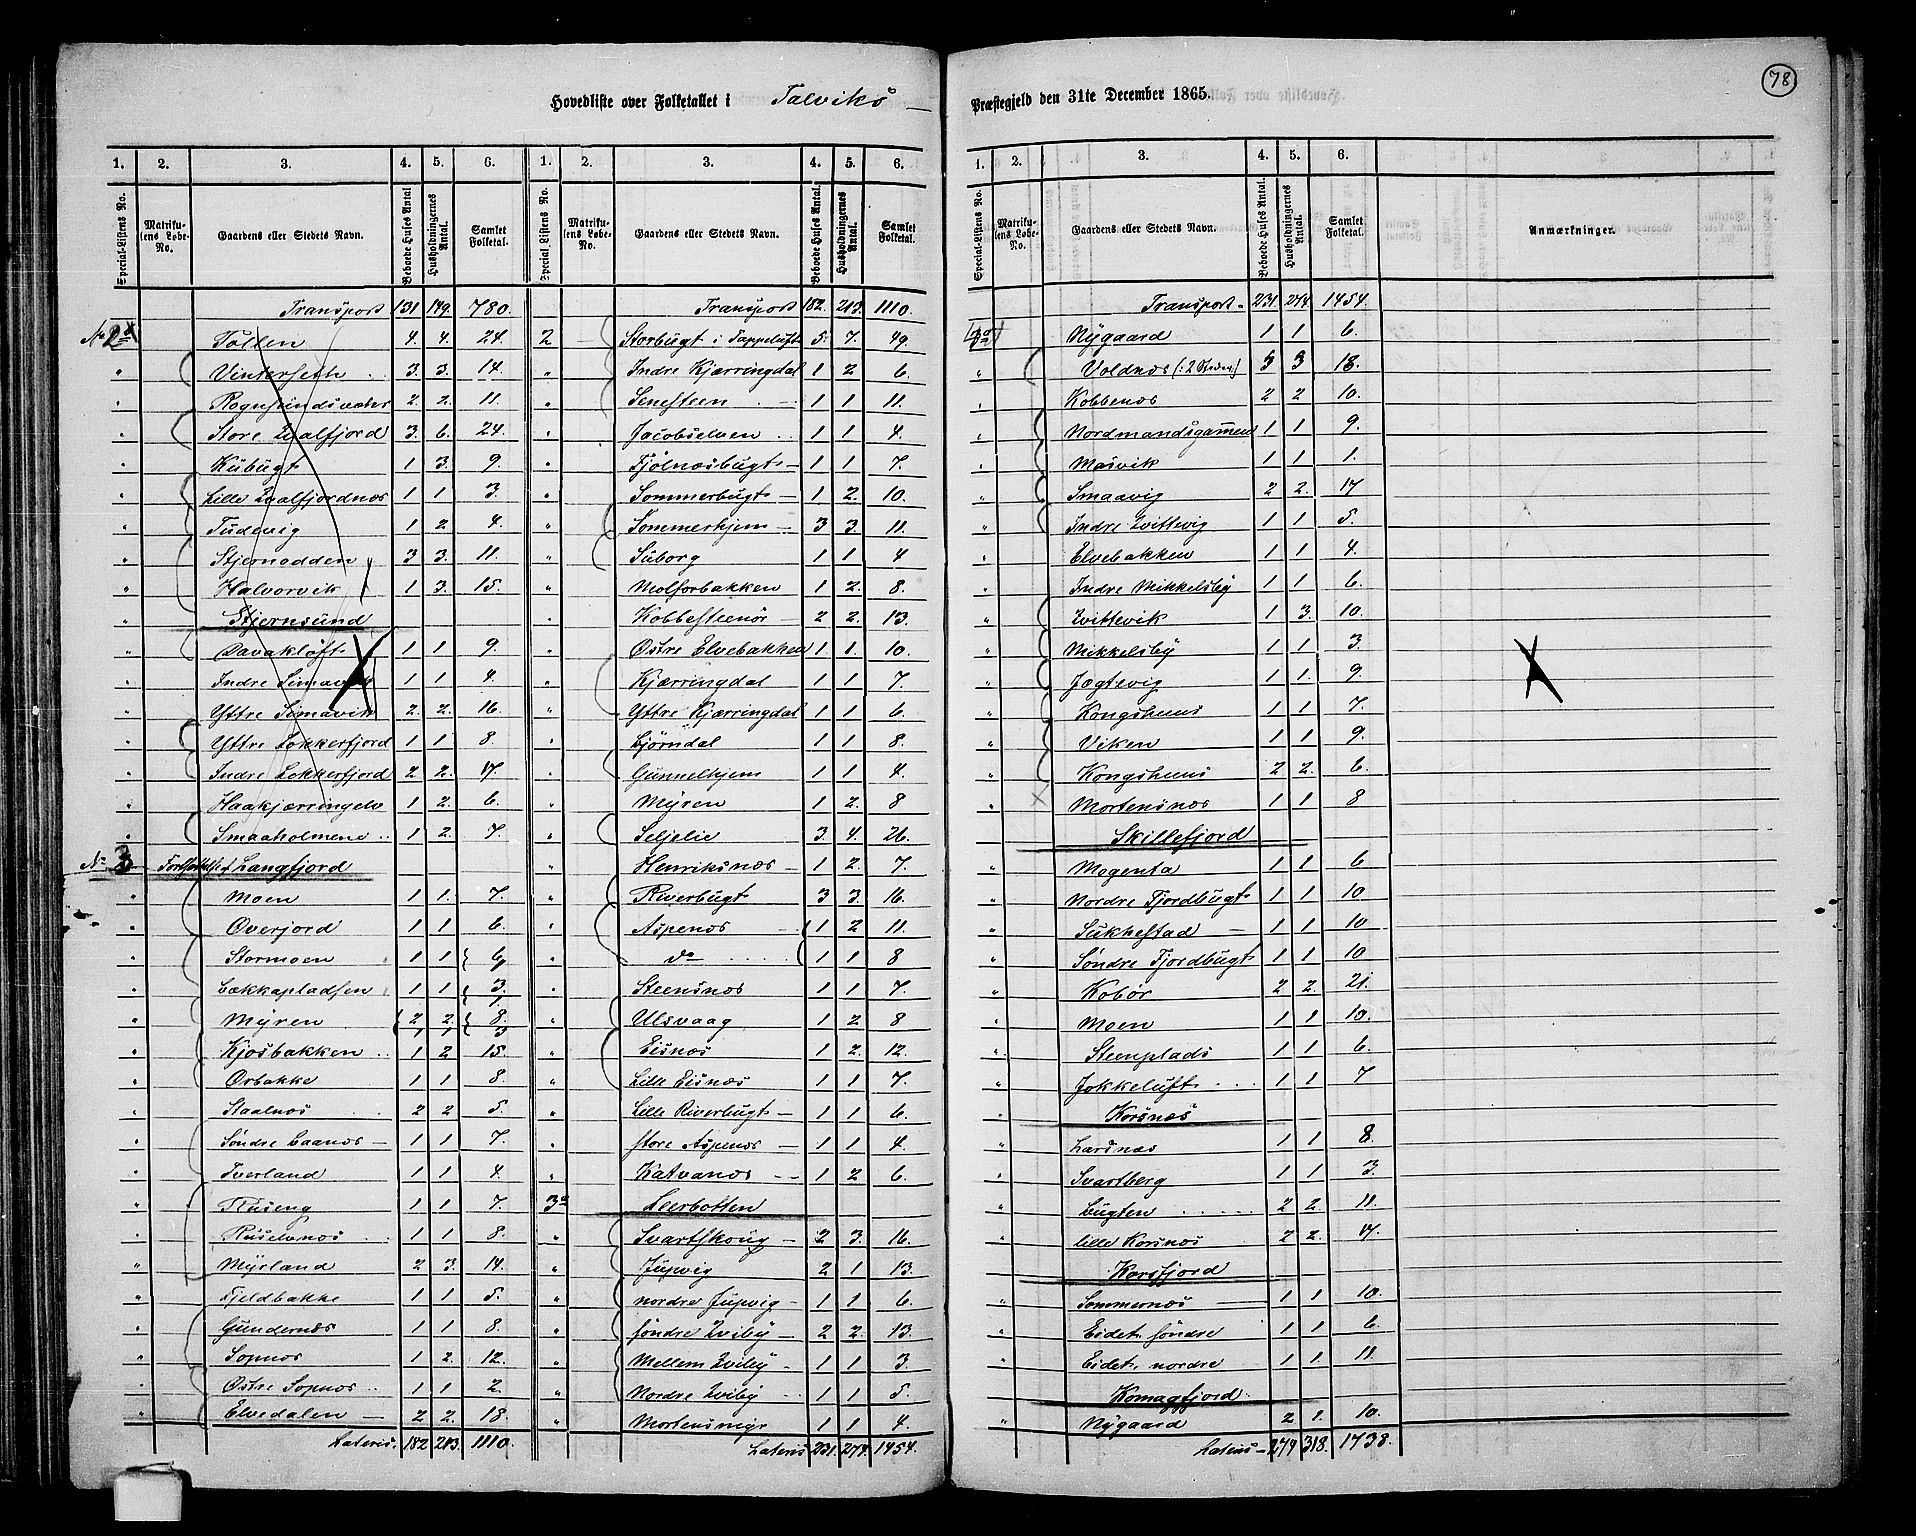 78
Hovedliste over Folketallet i Talviks
Præstegjeld den 31te December 1865.
1. 2. 3. 4. 5. 6. 1. 2. 3. 4. 5. 6.
Special-Listens No. Matrikulens Løbe-No. Gaardens eller Stedets Navn. Beboede Huses Antal Husholdningernes Antal. Samlet Folketal. Special-Listens No. Matrikulens Løbe-No. Gaardens eller Stedets Navn. Beboede Huses Antal. Husholdningernes Antal. Samlet Folketal.
Transport 131 149. 780.
Tollen 4. 4. 24.
" Vinterseth 3. 3. 14.
" Rognsundsvater 2 2. 11.
" Store Qvalfjord 3. 6. 24.
" Kubugt 1 3. 9.
" Lille Qvalfjordnæs 1 1 3.
" Tudevig 1 2 4.
" Stjernodden 3 3. 11.
" Halvorvik 1 3. 15.
" Stjernsund
" Davakløft 1 1 9.
" Indre Simavik 1 1 4.
" Yttre Simavik 2. 2. 16.
" Yttre Lokkerfjord 1 1 8.
" Indre Lokkerfjord 2 2. 17.
" Haakjærringelv 1 2. 6.
" Smaaholmene 1 2. 7.
No 3 Fortsættelse af Langfjord
" Moen 1 1. 7.
" Overfjord 1 1 6.
" Stormoen 1 1 6,
" Bækkapladsen 1 1 3.
" Myren 2 2. 8.
" Kjosbakken 1 2 15.
" Ørbakke 1 1 8.
" Staalnæs 2 2 5.
" Søndre Laanæs 1 1 7.
" Tverland 1 1 4.
" Ruseng 1 1 7.
" Ruselvnæs 1 1 8.
" Myrland 2 3. 14.
" Fjeldbakke 1 1 5.
" Gundernæs 1 1 8.
" Sopnæs 1 2. 12.
" Østre Sopnæs 1 1 2.
" Elvedalen 2 2. 18.
Lateris. 182 213. 1110.
Transport 182. 213. 1110.
2 Storbugt i Tappeluft 5. 7. 49.
" Indre Kjærringdal 1 2 6.
" Senesteen 1 1 11.
" Jacobselven 1 1 4.
" Fjølnæsbugt 1 1 7.
" Sommerbugt 1 2. 10.
" Sommerhjem 3 3. 11.
" Suborg 1 1 4
" Molforbakken 1 2. 8.
" Kobbesteenør 2 2. 13.
" Østre Elvebakken 1. 1. 10.
" Kjærringdal 1 1 7.
" Yttre Kjærringdal 1 1 6.
" Bjørndal 1 1 8.
" Gunnelhjem 1 1 4.
" Myren 1 2. 8
" Seljelie 3. 4. 26.
" Henriksnæs 1 2. 7.
" Riverbugt 3 3. 16.
" Aspenæs 1 2 11.
" do 1 1 8
" Steensnæs 1 1 7.
" Ulsvaag 1 2 8
" Eisnæs 1 2. 12.
" Lille Eisnæs 1 1 7.
" Lille Riverbugt 1 1 6.
" Store Aspenæs 1 1 4.
" Katvanæs 1 2 6.
3a Leerbotten
" Svartskoug 2 3. 16.
" Jupvig 2 1 13.
" nordre Jupvig 1 1 6.
" søndre Qviby 2 2. 13.
" Mellem Qviby 1 1 3.
" Nordre Qviby 1 1 5.
" Mortensmyr 1 1 4.
Lateris 231. 274. 1454.
1. 2. 3. 4. 5. 6.
Special-Listens No. Matrikulens Løbe-No. Gaardens eller Stedets Navn. Beboede Huses Antal. Husholdningernes Antal. Samlet Folketal. Anmærkninger.
Transport 231. 274. 1454.
Nygaard 1 1 6.
" Voldnæs 3 3 18.
" Kobbenæs 2 2 10.
" Nordmandsgammen 1 1 9.
" Masvik 1 1 1.
" Smaavig 2 2. 17
" Indre Qvittevig 1 1 5.
" Elvebakken 1 1 4.
" Indre Mikkelsby 1 1 6.
" Qvittevik 1 3. 10.
" Mikkelsby 1 1 3.
" Jøgtevig 1 1. 9.
" Kongshuus 1 1 7.
" Viken 1 1 9.
" Kongshuus 2 2. 6.
" Mortensnæs 1 1 8
Skillefjord
" Mogenta 1 1 6
" Nordre Fjordbugt 1 1 10
" Sukkestad 1 1 10
" Søndre Fjordbugt 1 1 10
" Kobør 2 2. 21.
" Moen 1 1 10.
" Steenplads 1 1 6.
" Jokkeluft 1 1 7
" Korsnæs
" Larsnæs 1 1 8.
" Svartberg 1 1 3.
" Bugten 2 2. 11.
" lille Korsnæs 2 2. 17.
" Korsfjord
" Sommernæs 1 1 10.
" Eidet søndre 1 1 6
" Eidet nordre 1 1 11.
Komagfjord
" Nygaard 2 1. 10.
Lateris 279 318. 1738.